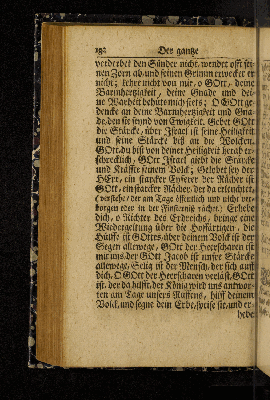 192 Der gantze
verdirbet den Sünder nicht, wendet offt sei-
nen Zorn ab, und seinen Grimm erwecket er
nicht; kehre nicht von mir, o GOtt, deine
Barmhertzigkeit, deine Gnade und dei-
ne Warheit behüte mich stets; O GOtt ge-
dencke an deine Barmhertzigkeit und Gna-
de, den sie seynd von Ewigkeit. Gebet GOtt
die Stärcke, über Israel ist seine Heiligkeit
und seine Stärcke biß an die Wolcken.
GOtt, du bist von deiner Heiligkeit herab er-
schrecklich, GOtt Israel giebt die Stärcke
und Kräffte seinem Volck; Gelobet sey der
HErr, ein starcker Eyferer der Rächer ist
GOtt, ein starcker Rächer, der da erleuchtet,
(verstehe / der am Tage öffentlich und nicht ver-
borgen oder in der Finsterniß rächet) Erhebe
dich, o Richter des Erdreichs, bringe eine
Wiedergeltung über die Hoffärtigen, die
Hülffe ist GOttes, über deinem Volck ist der
Segen allewege, GOtt der Heerscharen ist
mit uns, der GOtt Jacob ist unser Stärcke
allewege, Selig ist der Mensch, der sich auff
dich, O GOtt der Heerscharen verläst, GOtt
ist, der da hilfft, der König wird uns antwor-
ten am Tage unsers Ruffens, hilff deinem
Volck, und segne dein Erbe, speise sie, und er-
hebe